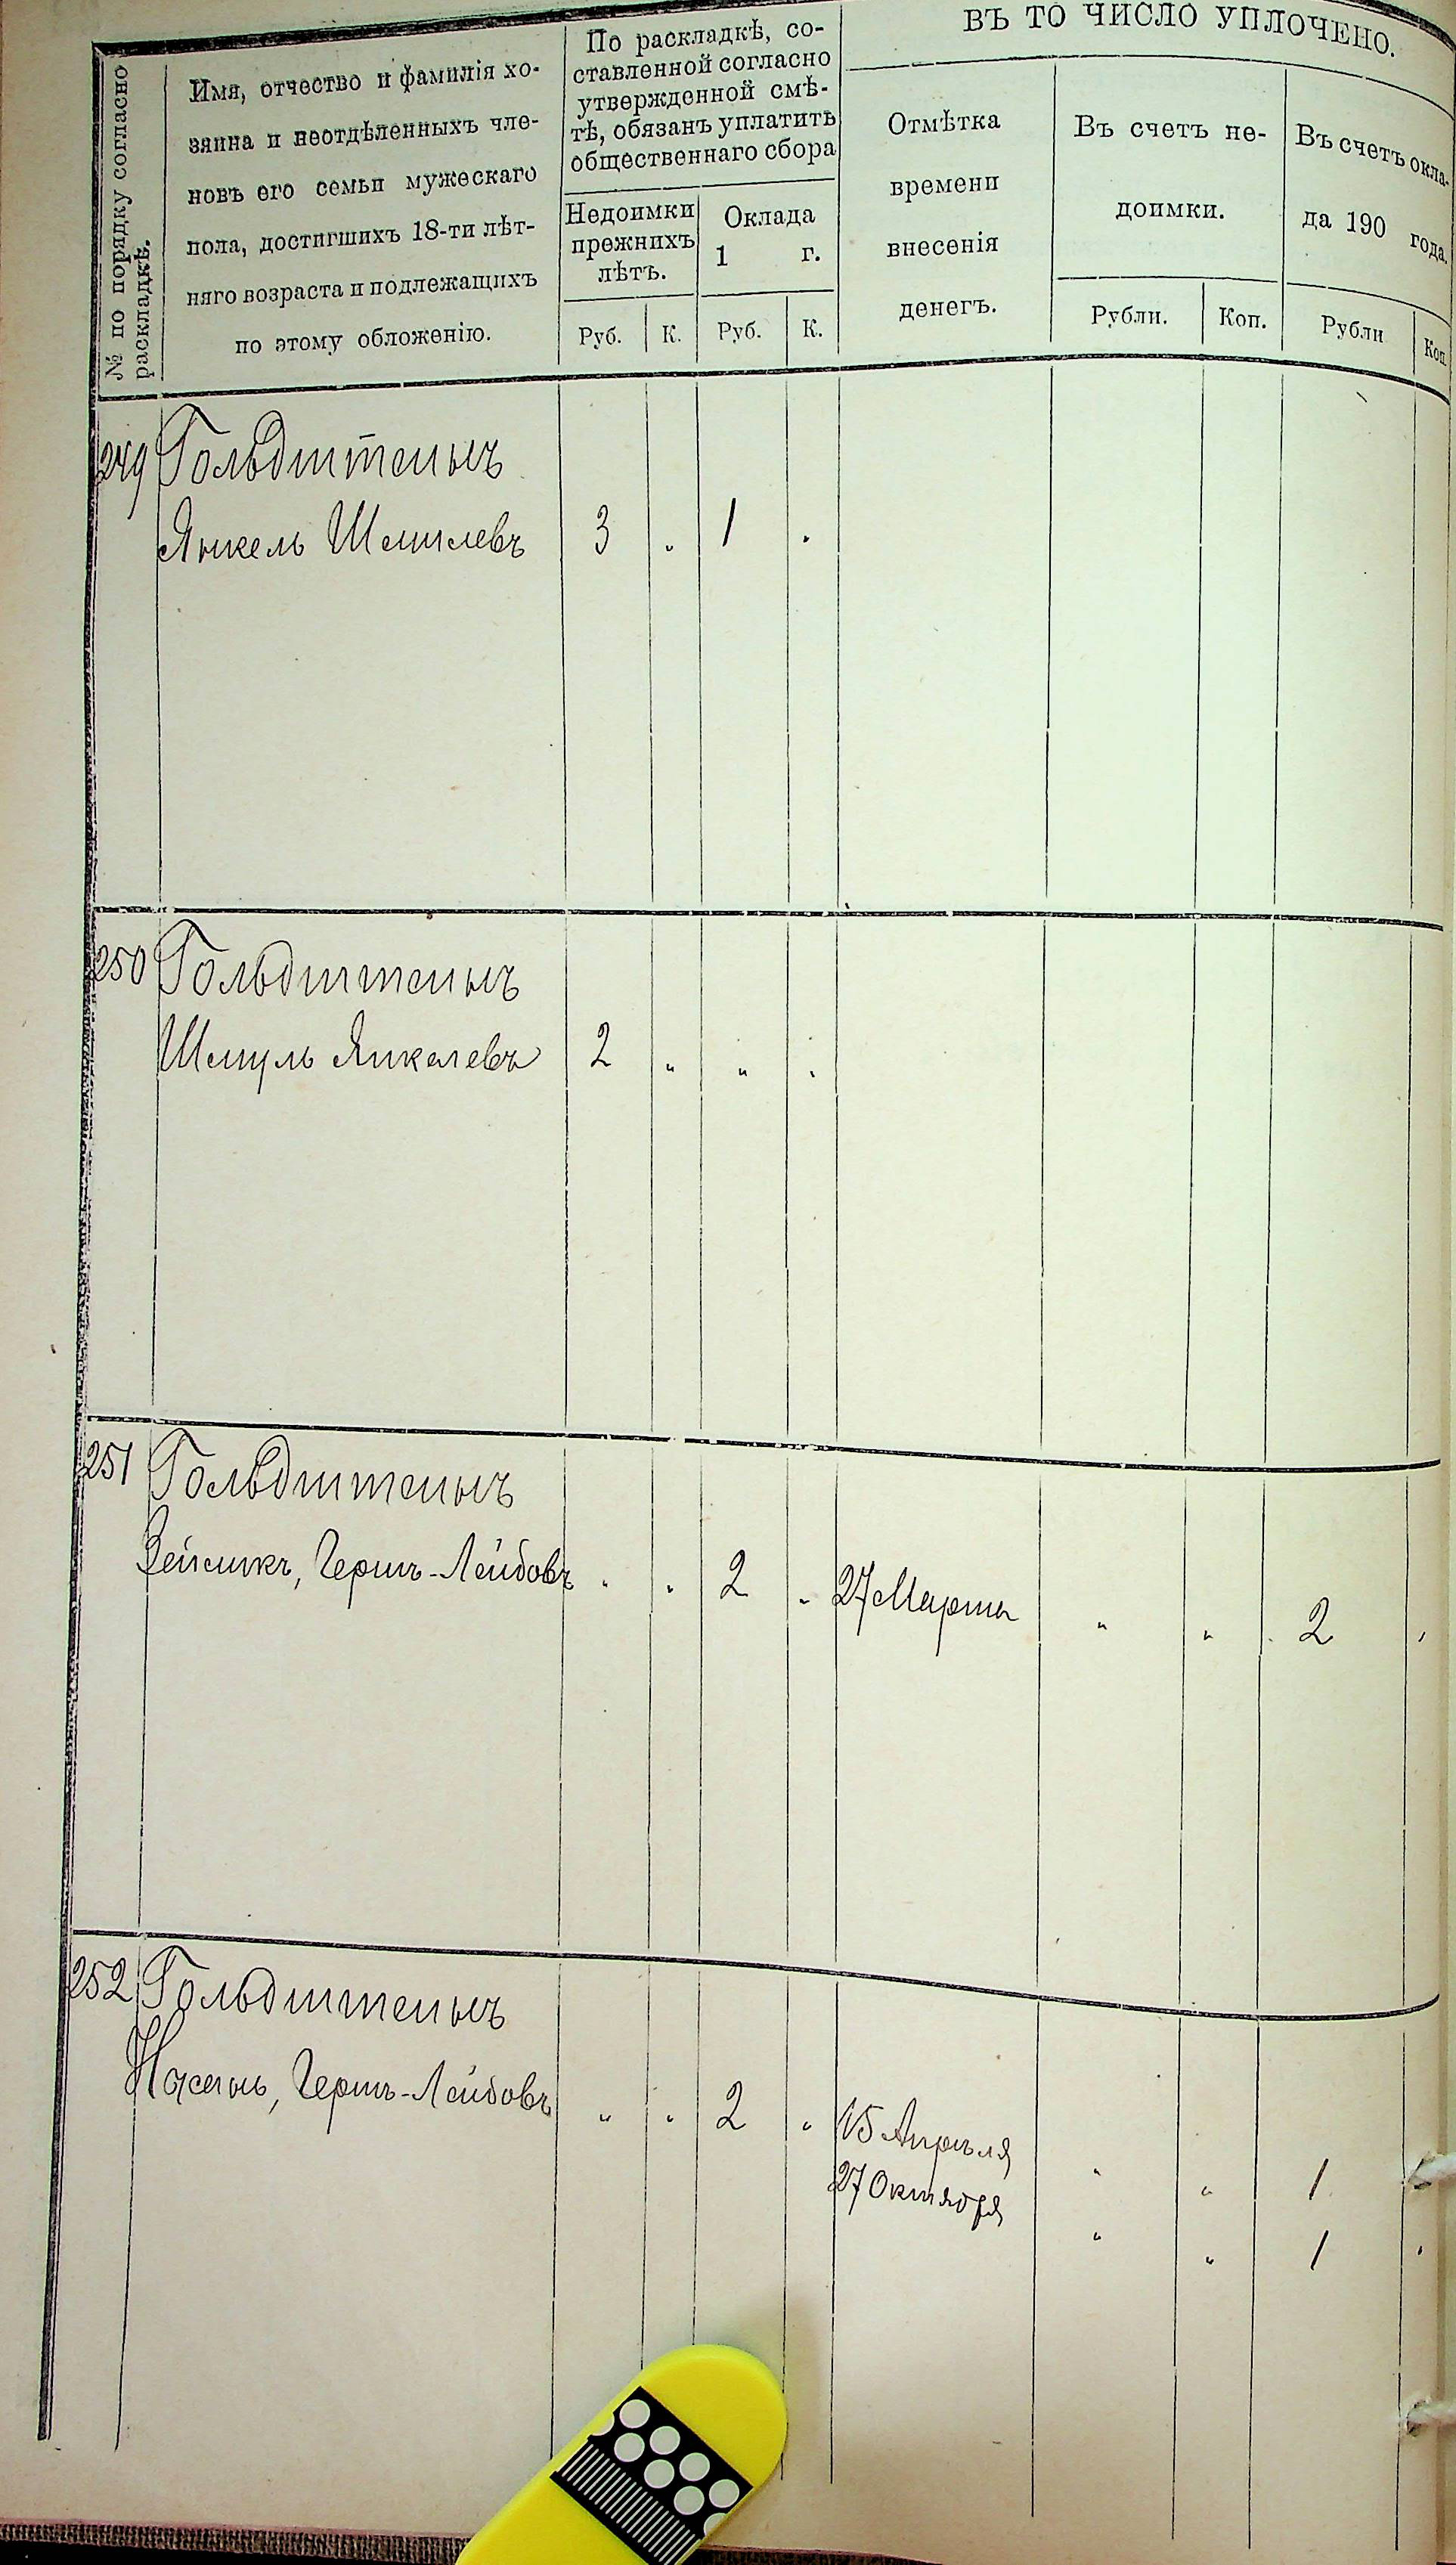 № по порядку согласно
раскладкѣ.
Имя, отчество и фамилія хо-
зяина и неотдѣленныхъ чле-
новъ его семьи мужескаго
пола, достигшихъ 18-ти лѣт-
няго возраста и подлежащихъ
по этому обложенію.
По раскладкѣ, со-
ставленной согласно
утвержденной смѣ-
тѣ, обязанъ уплатить
общественнаго сбора
Недоимки
прежнихъ
лѣтъ.
Руб. К.
Оклада
1 г.
Руб. К.
ВЪ ТО ЧИСЛО УПЛОЧЕНО.
Отмѣтка
времени
внесенія
денегъ.
Въ счетъ не-
доимки.
Рубли. Коп.
Въ счетъ окла-
да 190 года.
Рубли Коп
249 Гольдштейнъ
Янкель Шмилевъ 3 „ 1 „
250 Гольдштейнъ
Шмуль Янкелевъ 2 „ „ „
251 Гольдштейнъ
Зейликъ, Гершъ-Лейбовъ „ „ 2 „ 27 Марта „ „ 2 „
252 Гольдштейнъ
Герщъ-Лейбовъ „ „ 2 „ 15 Апрѣля „ „ 1
27 Октября „ „ 1 „